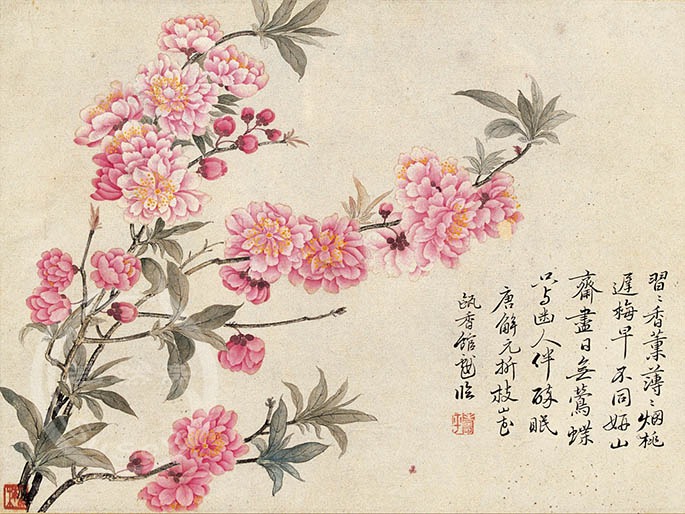 習〻香薰薄〻烟桃
遲梅早不同妍山
齋盡日無鶯蝶
只与幽人伴醉眠
唐解元折枝山花
甌香館戲臨
壽平